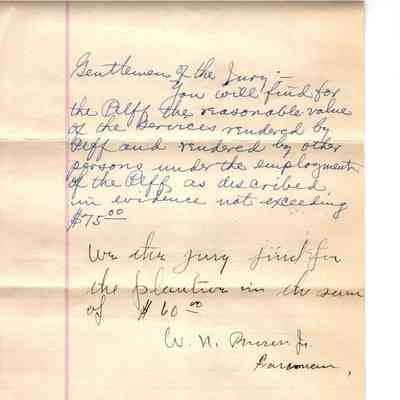 Gentlemen of the Jury:-
You will find for
the Plff the reasonable value
of the services rendered by
Plff and rendered by other
persons under the employment
of the Plff, as described,
in evidence not exceeding
$75.00
We the jury find for
the plantive in the sum
of $60.00
W. N. Jr.